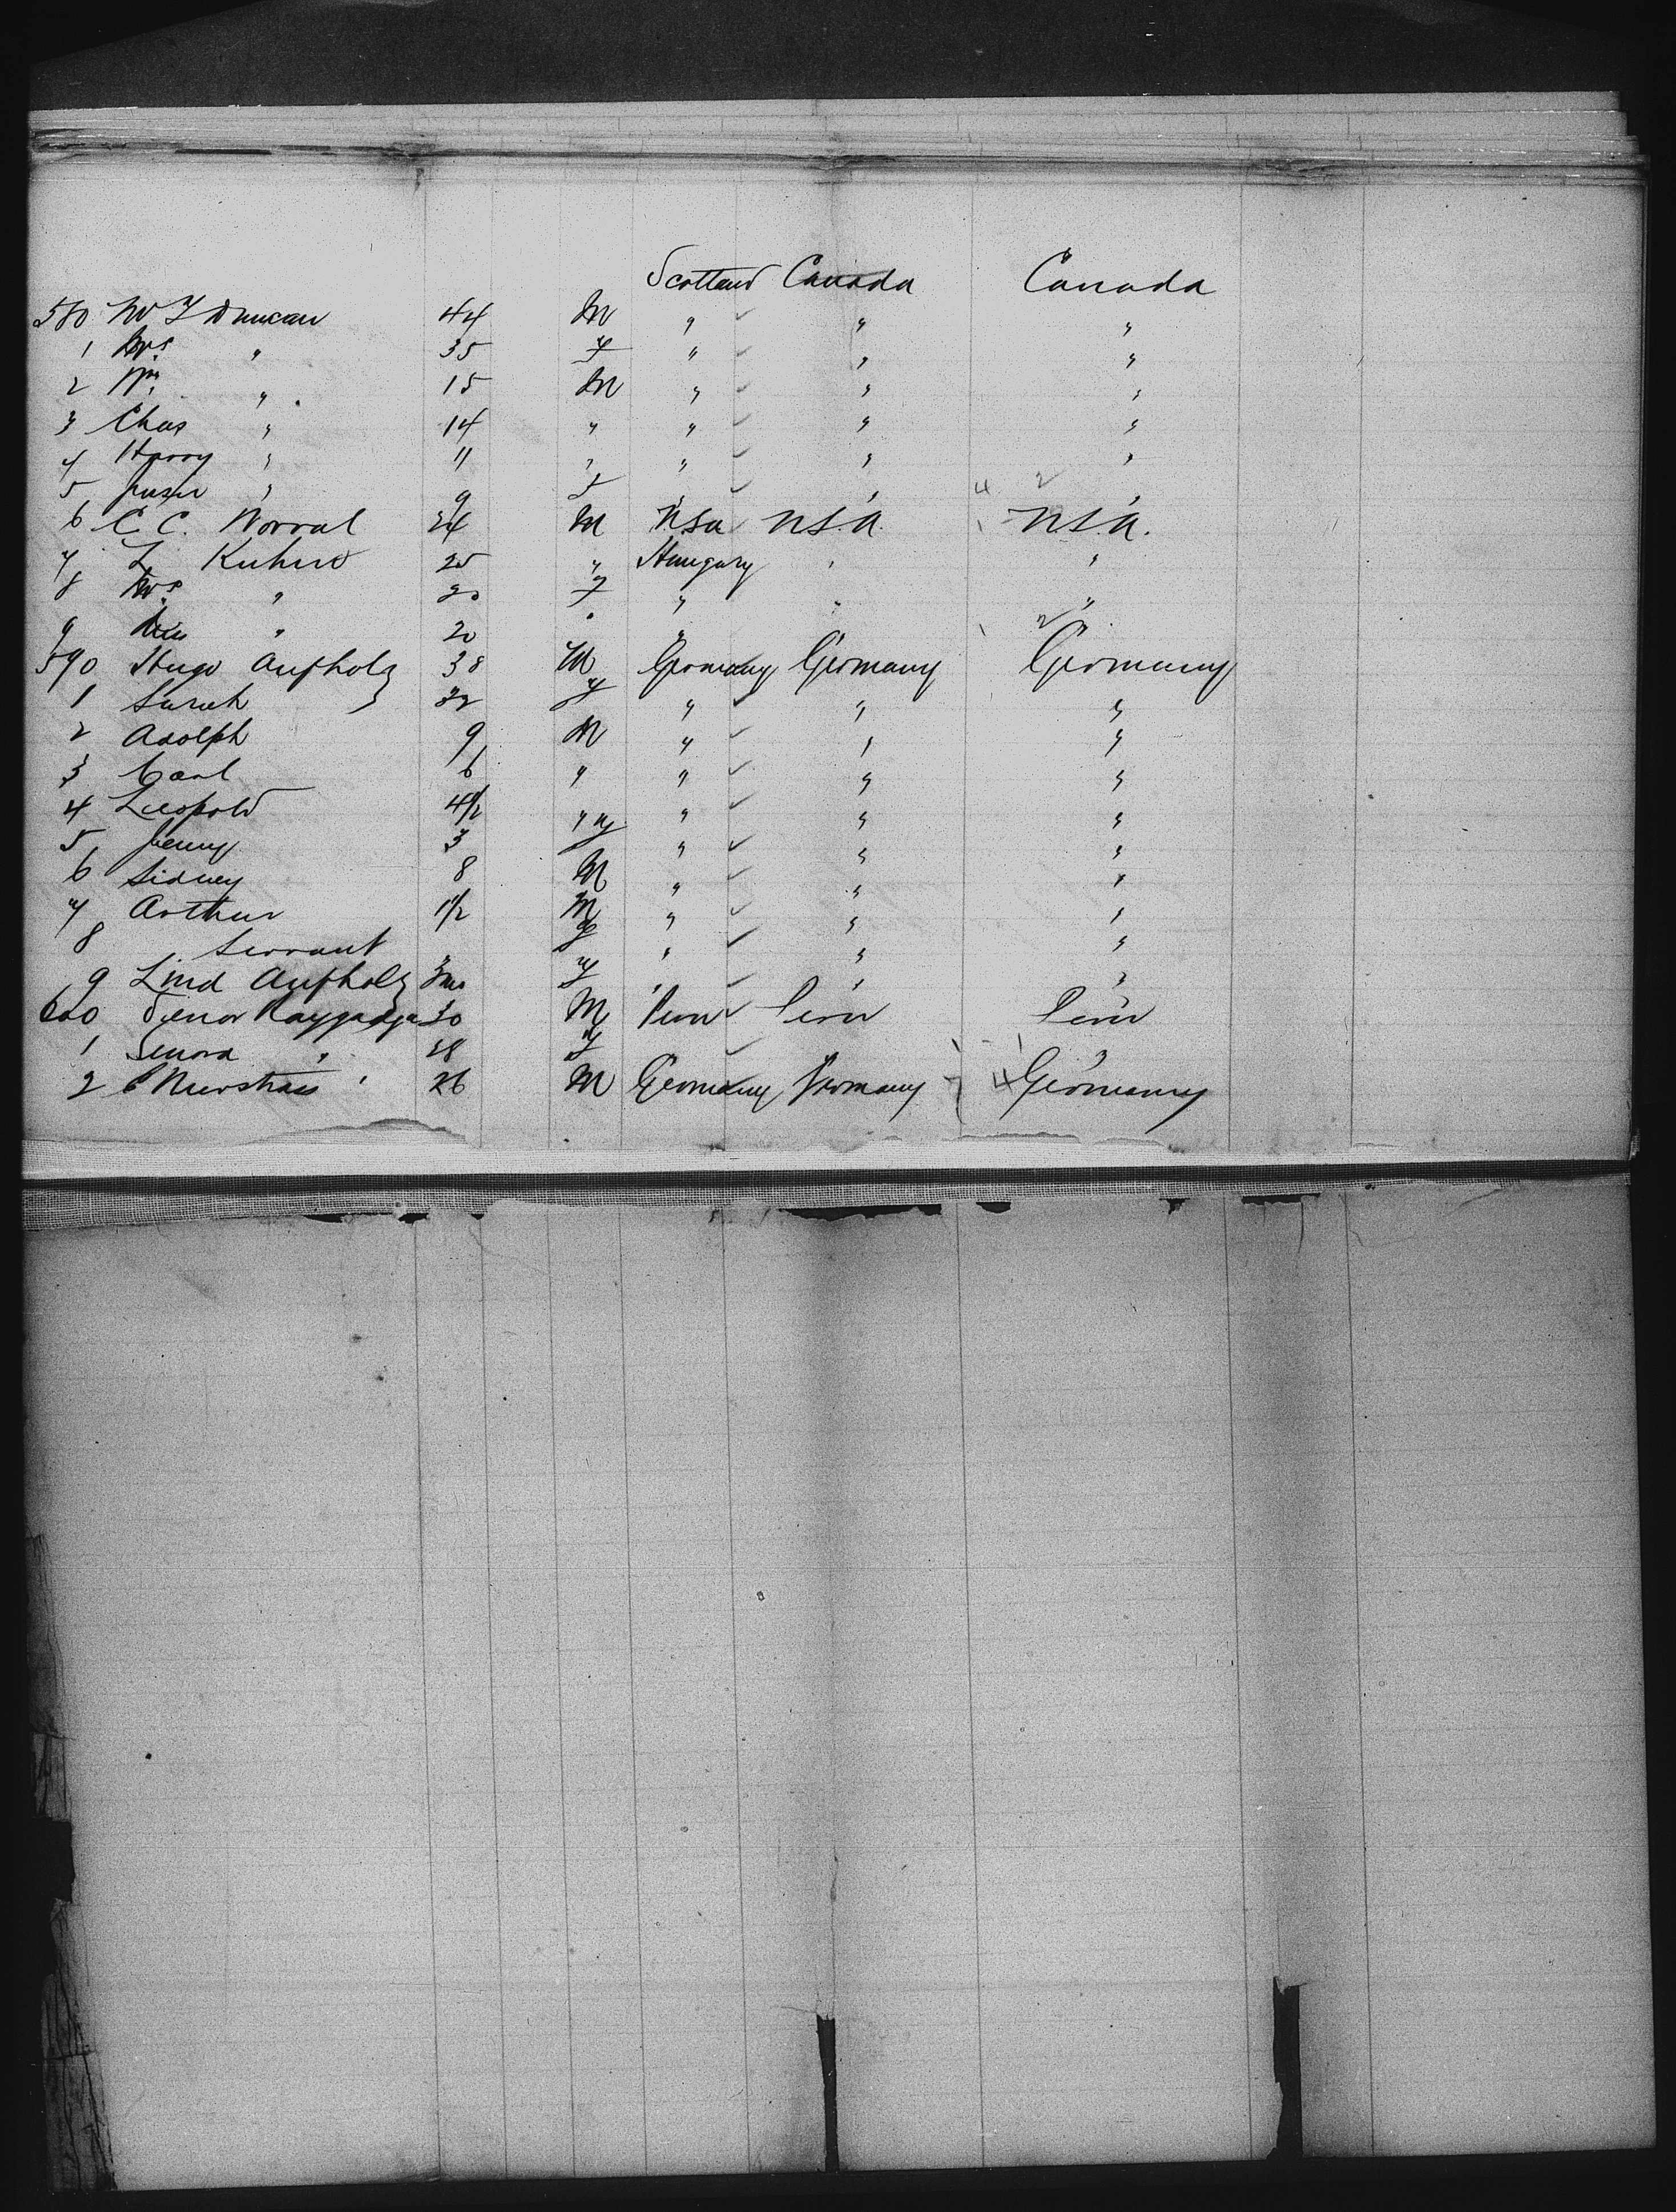 Scotland Canada Canada
580 W J Duncan 44 M " " "
1 Mrs " 35 F " " "
2 Wm " 15 M " " "
3 Chas " 14 " " " "
4 Harry " 11 " " " "
5 " 9 F " " "
6 C. C. Worral 24 M U.S.A U.S.A. U.S.A.
7 L Kuhne 25 " Hungary " "
8 Mrs " 20 F " " "
9 " 20 " " " "
590 Hugo Aufholz 38 M Germany Germany Germany
1 Sarah 32 F " " "
2 Adolph 9 M " " "
3 Carl 6 " " " "
4 Leopold 4 1/2 " " " "
5 Jenny 3 F " " "
6 Sidney 8 M " " "
7 Arthur 1 1/2 M " " "
8 Servant F " " "
9 Lind Aufholz 3 ms F " " "
600 Senor Raygadga 30 M Peru Peru Peru
1 Senora " 28 F
2 26 M Germany Germany Germany